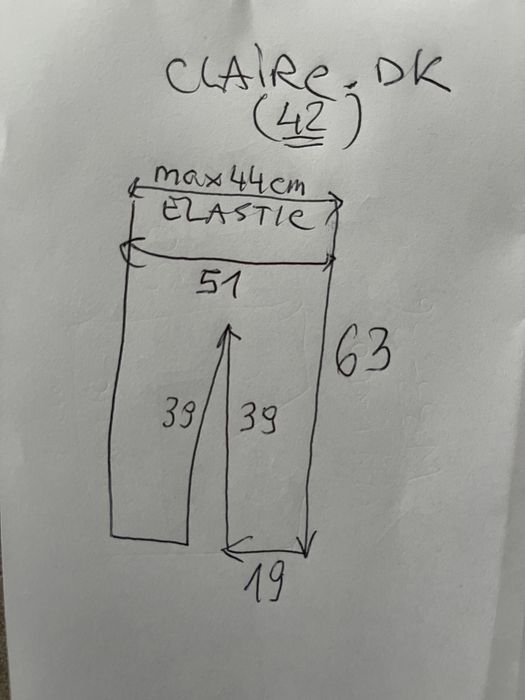 CLAIRe. DK
(42)
max 44cm
ELASTIC
51
63
39 39
19